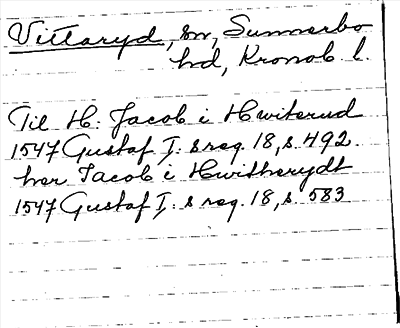 Vittaryd, sn, Sunnerbo
hd, Kronob l.
Til H. Jacob i Hwiterud
1547 Gustaf I: s reg. 18, s. 492.
her Jacob i Hwittherydt
1547 Gustaf I: s reg. 18, s. 583